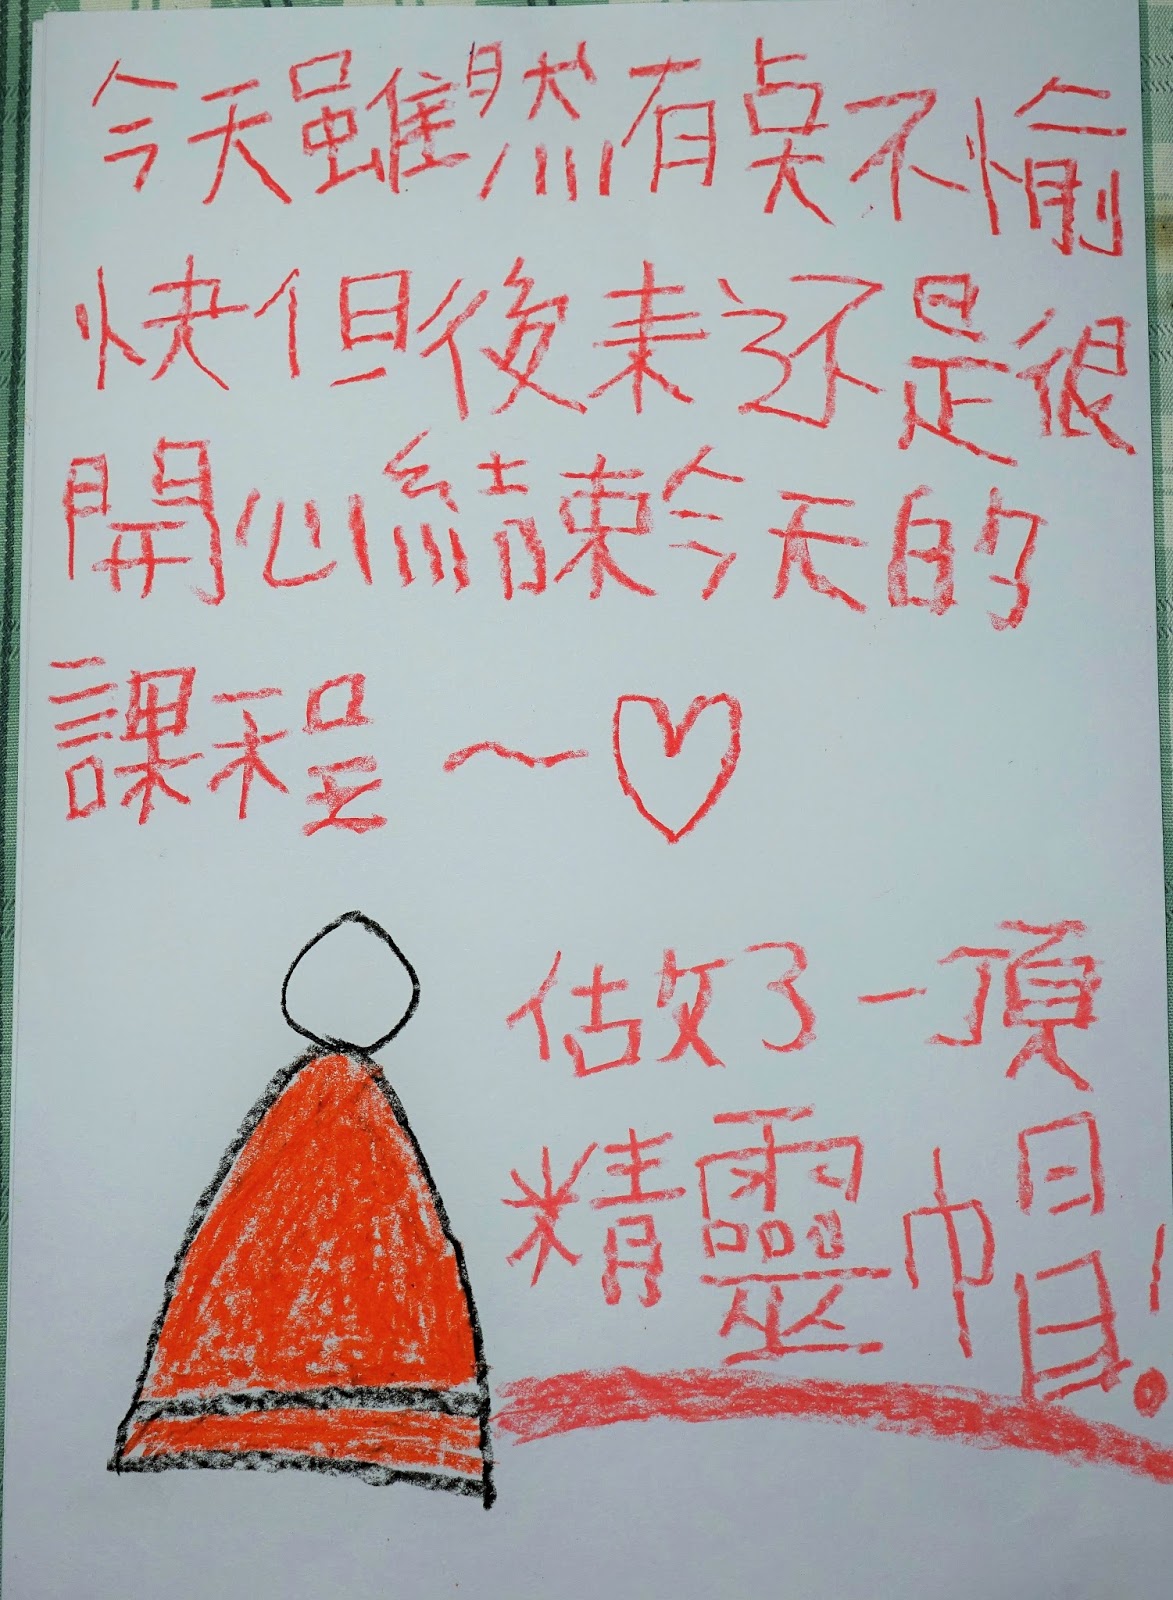 今天雖然有点不愉
快但後来还是很
開心結束今天的
課程～♡
估做了一頂
精靈帽！